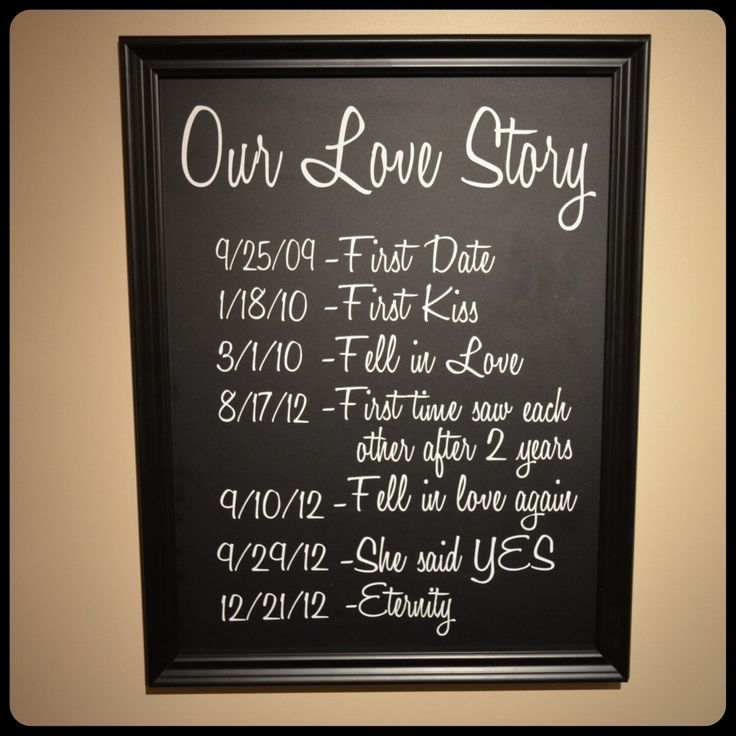 Our Love Story
9/25/09 -First Date
1/18/10 -First Kiss
3/1/10 -Fell in Love
8/17/12 -First time saw each
other after 2 years
9/10/12 -Fell in love again
9/29/12 -She said YES
12/21/12 -Eternity